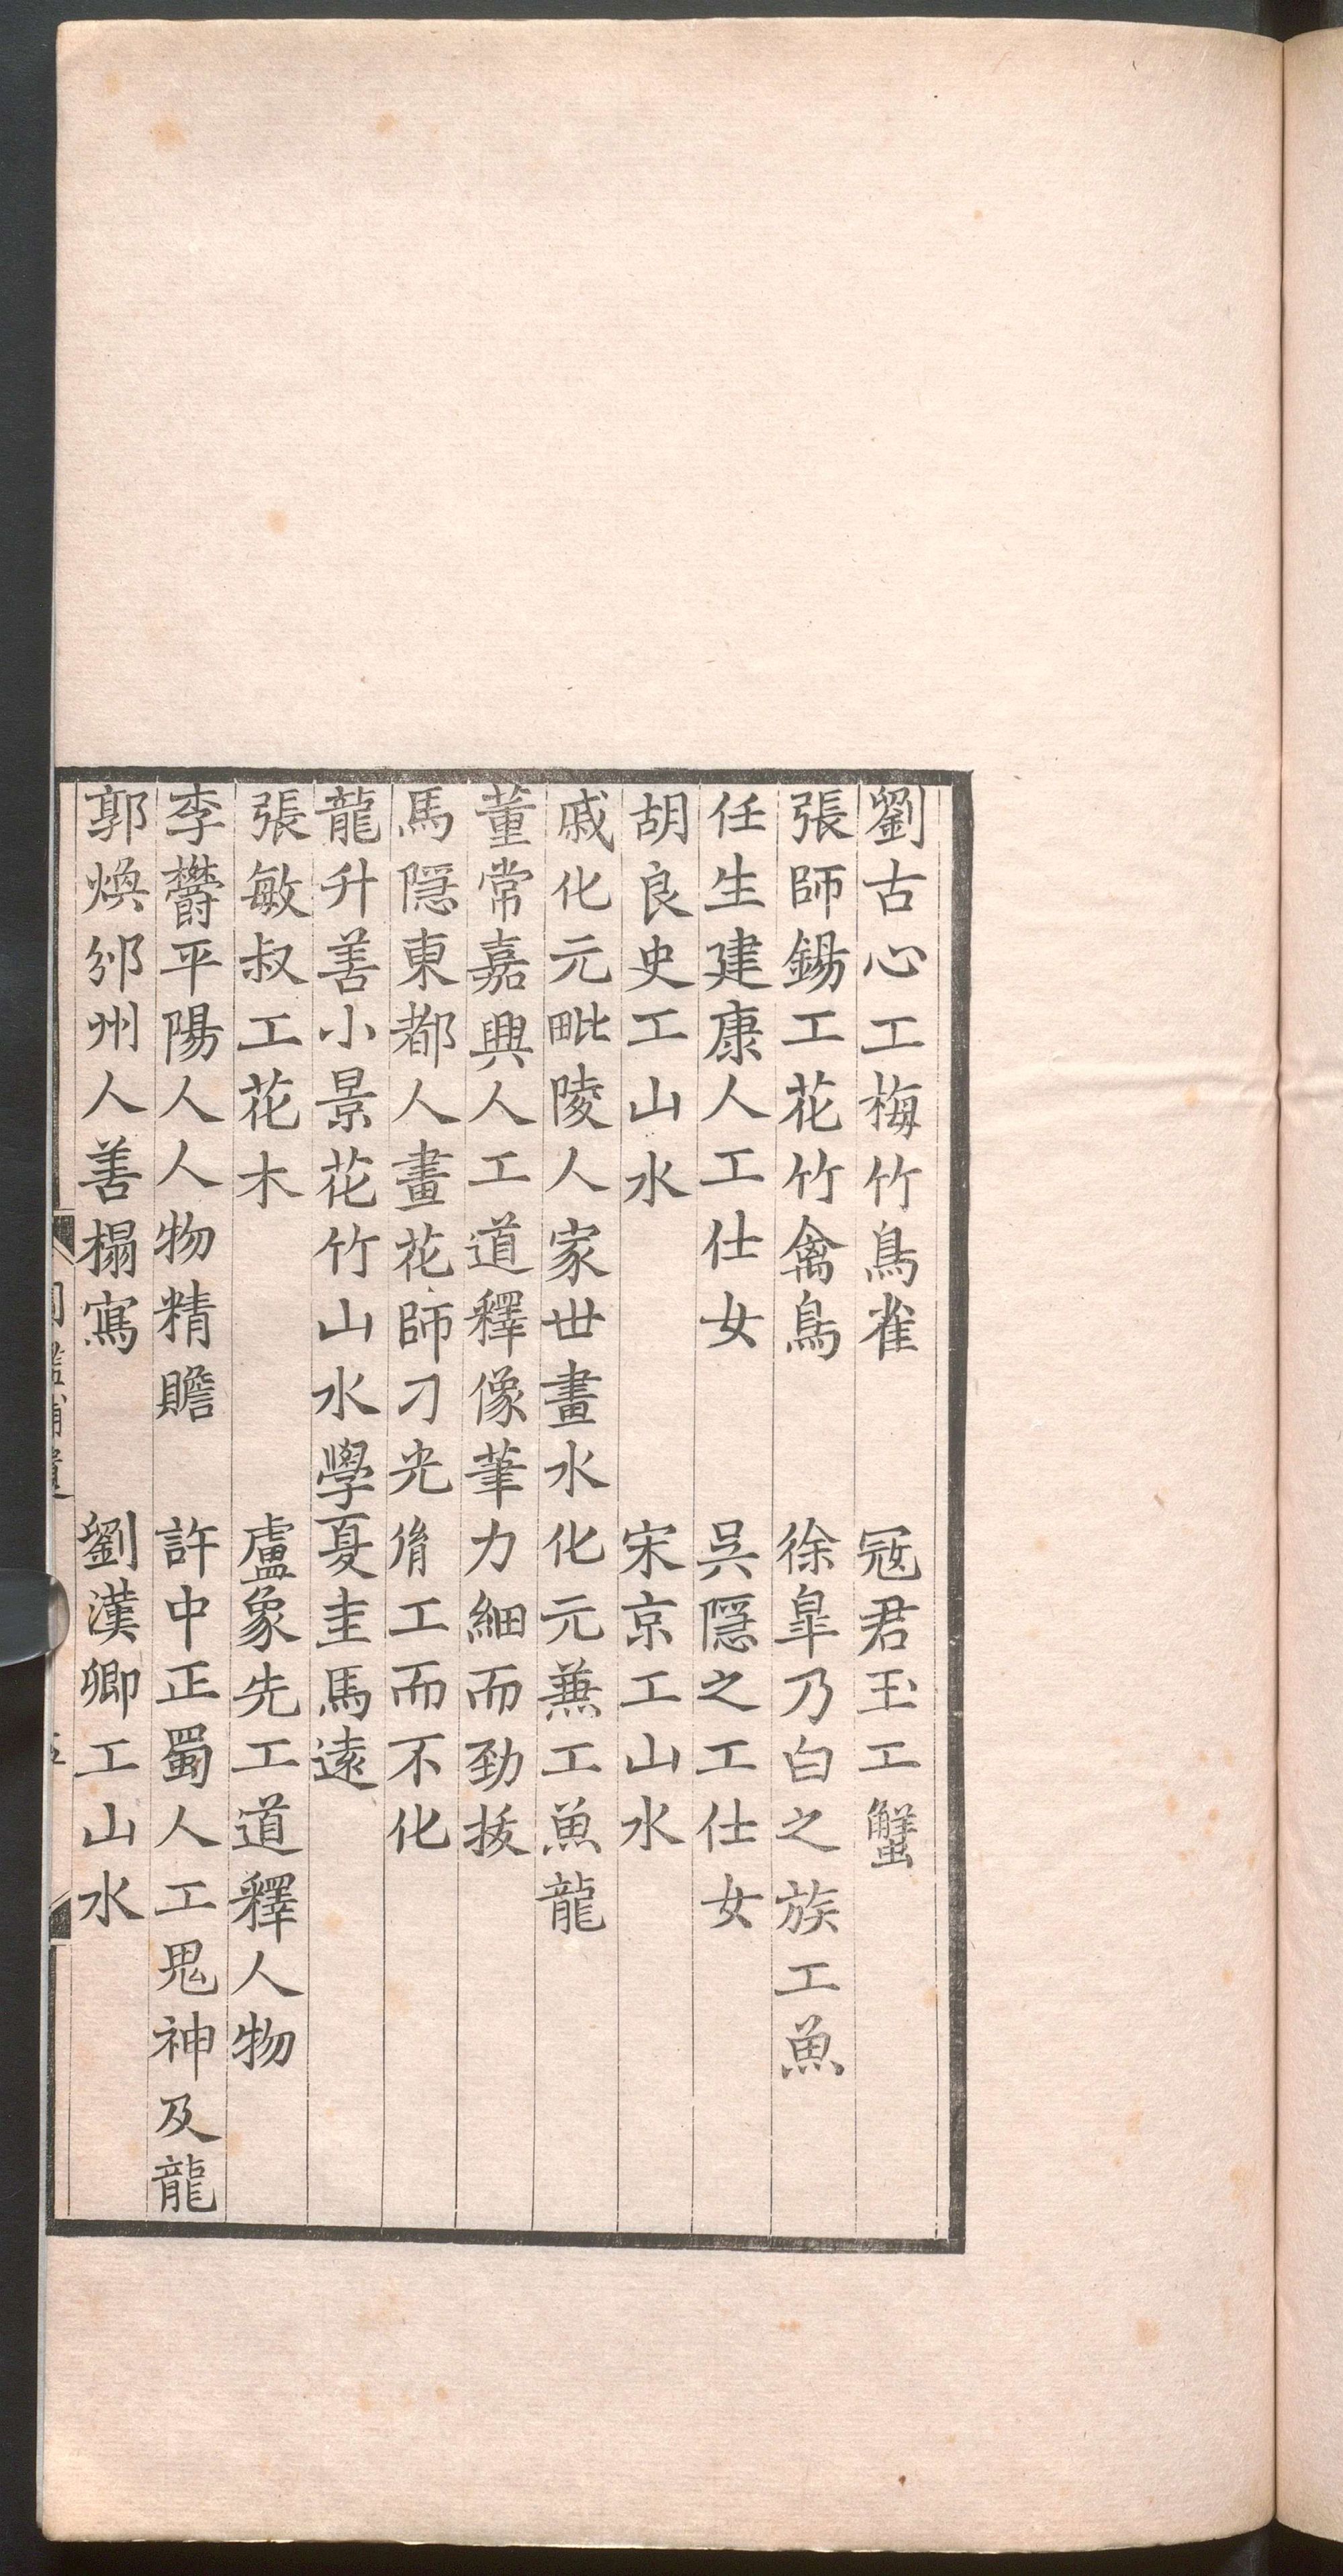 劉古心工梅竹鳥雀　冦君玉工蟹
張師錫工花竹禽鳥　徐臯乃白之族工魚
任生建康人工仕女　吳隱之工仕女
胡良史工山水　宋京工山水
戚化元毗陵人家世畫水化元兼工魚龍
董常嘉興人工道釋像筆力細而勁拔
馬隱東都人畫花師刁光胤工而不化
龍升善小景花竹山水學夏圭馬遠
張敏叔工花木　盧象先工道釋人物
李欝平陽人人物精贍　許中正蜀人工鬼神及龍
郭煥邠州人善榻寫　劉漢卿工山水